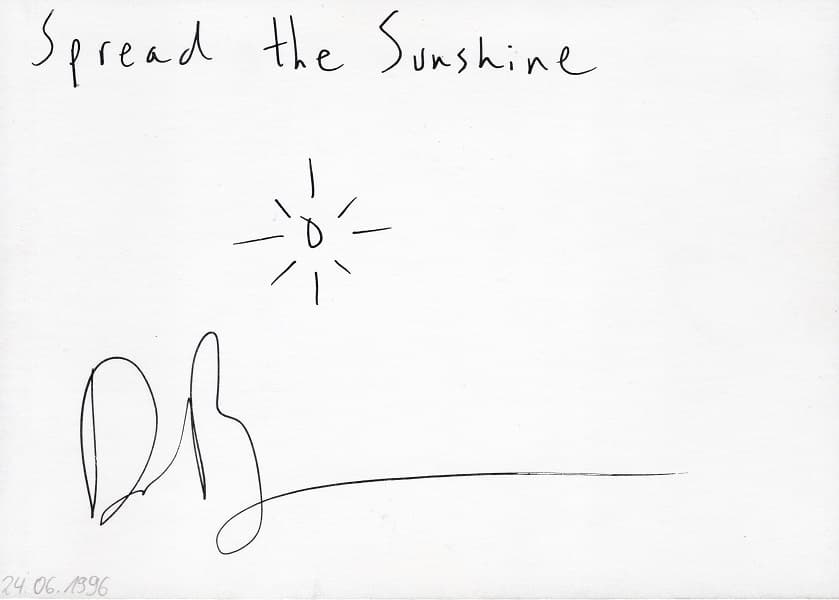 Spread the Sunshine
24.06.1996